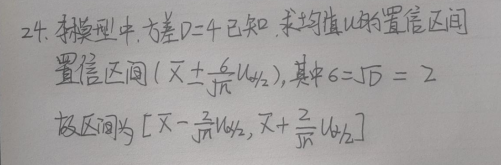 24. 本模型中,方差D=4已知.求均值u的置信区间
置信区间(X̄ ± 6/√n Uα/2),其中6=√D = 2
故区间为[X̄ - 2/√n Uα/2, X̄ + 2/√n Uα/2]